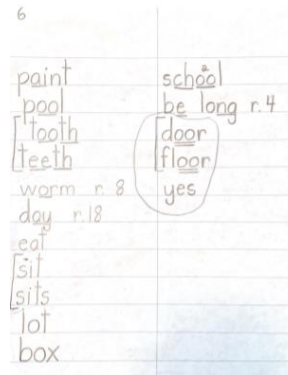 6
paint
pool
tooth
teeth
worm r. 8
day r.18
eat
sit
sits
lot
box
school
be long r. 4
door
floor
yes